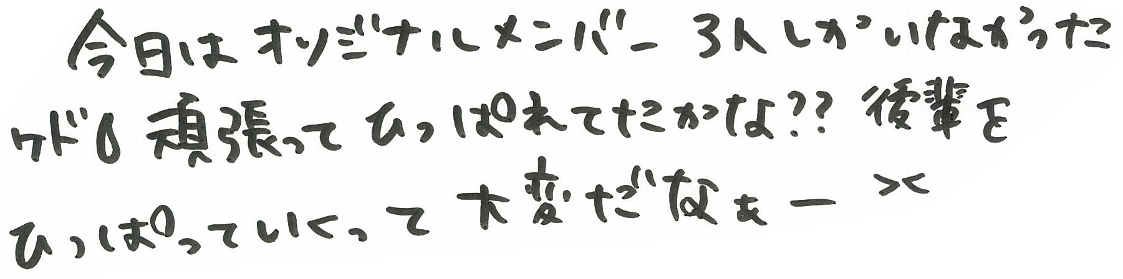 今日はオリジナルメンバー 3人しかいなかった
ケド、頑張ってひっぱれてたかな?? 後輩を
ひっぱっていくって 大変だなぁー ><